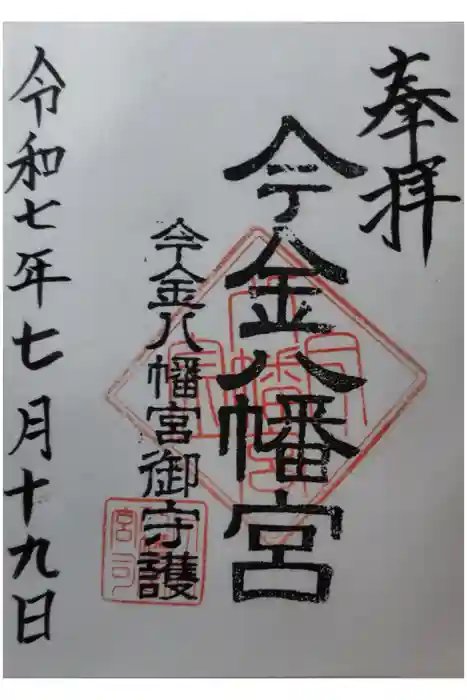 奉拝
今金八幡宮
今金八幡宮御守護
宮司
令和七年七月十九日